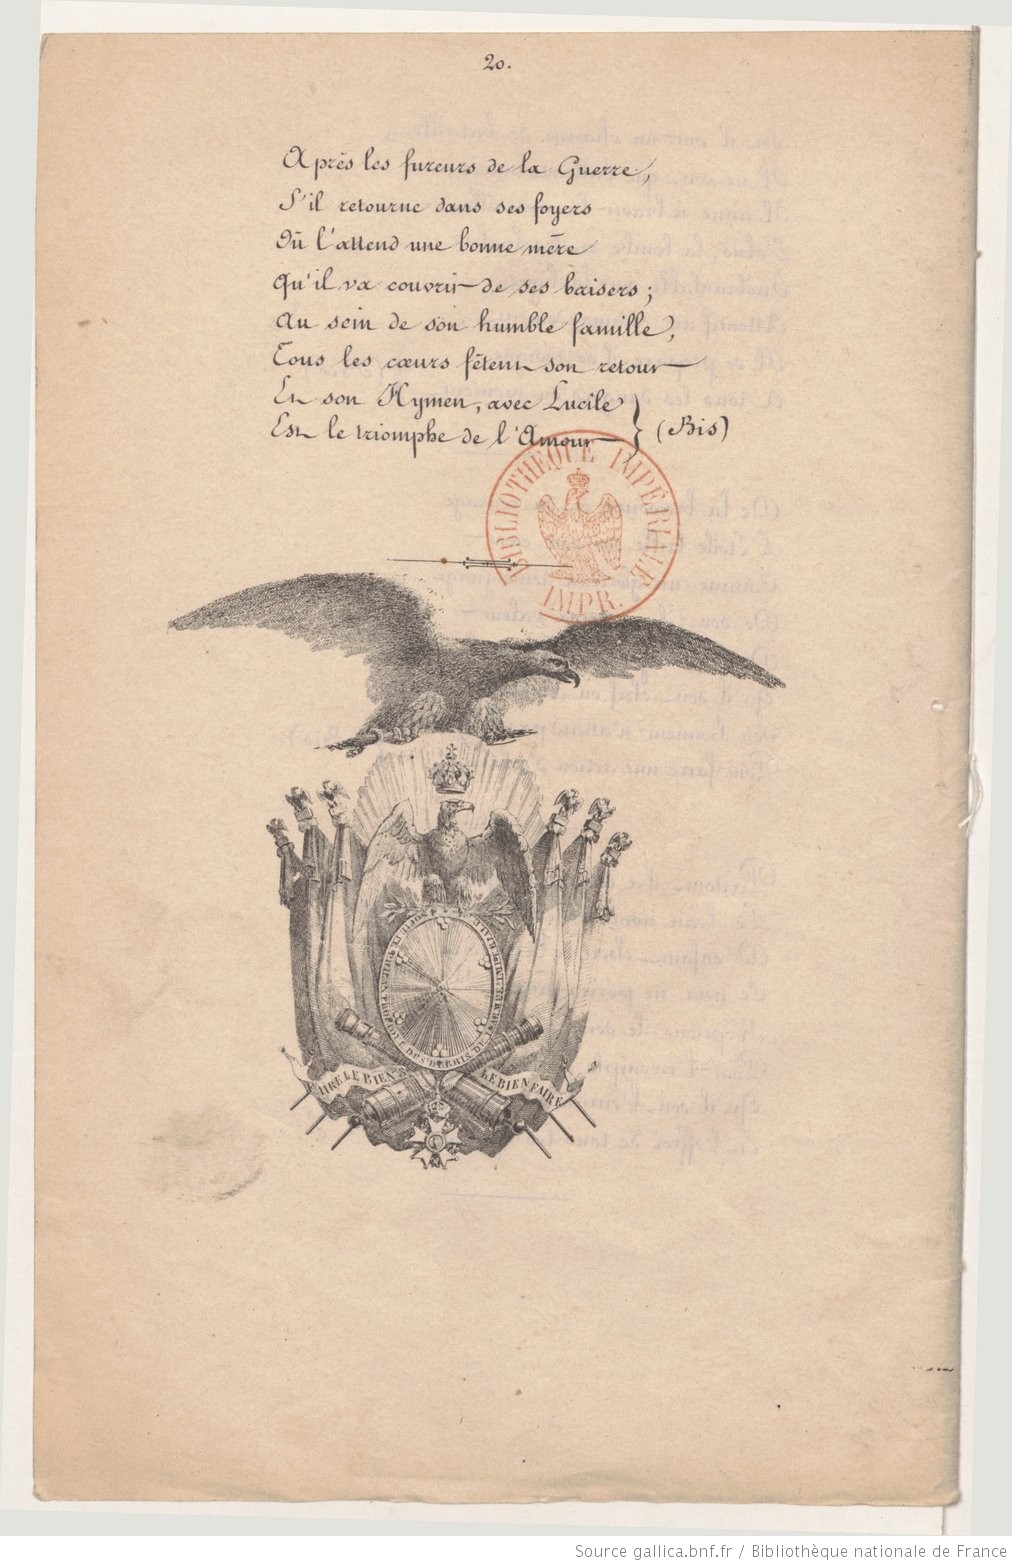 20.
Après les fureurs de la Guerre,
S'il retourne dans ses foyers
Où l'attend une bonne mère
Qu'il va couvrir de ses baisers;
Au sein de son humble famille,
Tous les cœurs fêtent son retour
Et son Hymen, avec Lucile
Est le triomphe de l'Amour } (Bis)
BIBLIOTHÈQUE IMPÉRIALE
IMPR.
DES DEBRIS DE L'ARMÉE IMPERIALE
DIRE LE BIEN
LE BIEN FAIRE
Source gallica.bnf.fr / Bibliothèque nationale de France